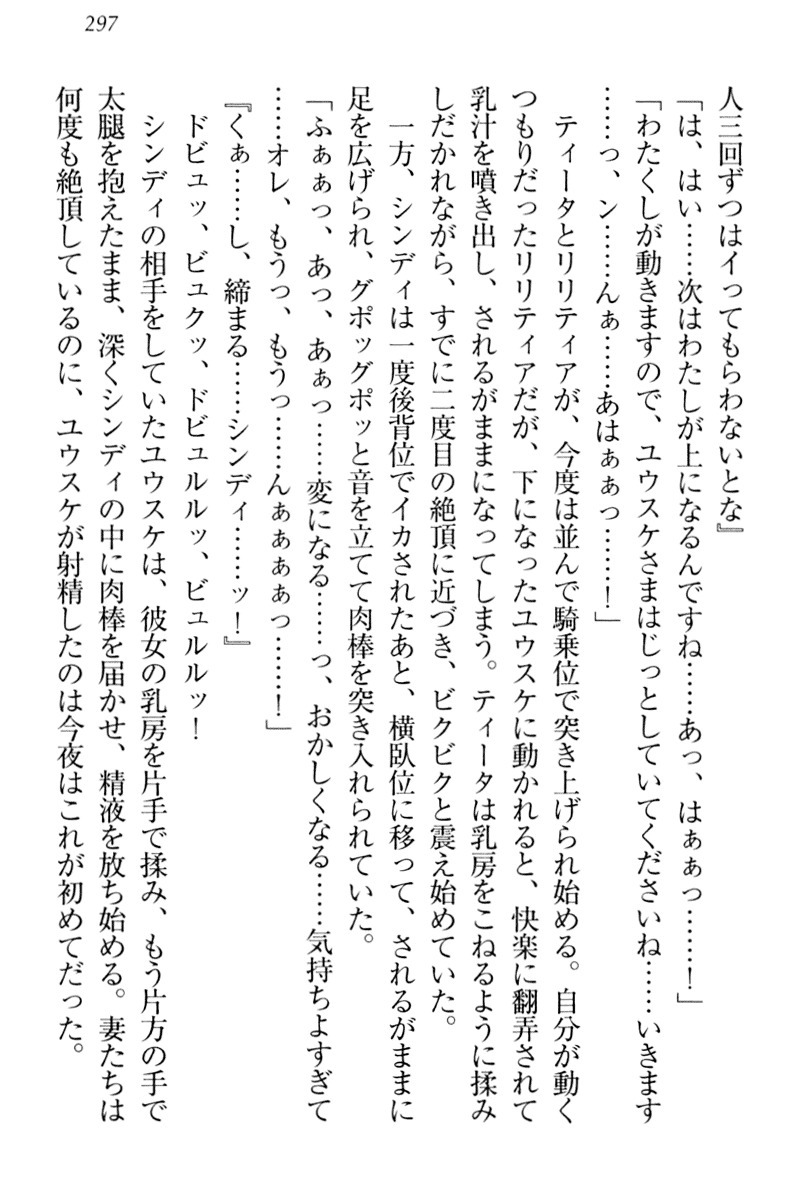 297
人三回ずつはイってもらわないとな』
「は、はい……次はわたしが上になるんですね……あっ、はぁぁっ……！」
「わたくしが動きますので、ユウスケさまはじっとしていてくださいね……いきます
……っ、ン……んぁ……あはぁぁっ……！」
　ティータとリリティアが、今度は並んで騎乗位で突き上げられ始める。自分が動く
つもりだったリリティアだが、下になったユウスケに動かれると、快楽に翻弄されて
乳汁を噴き出し、されるがままになってしまう。ティータは乳房をこねるように揉み
しだかれながら、すでに二度目の絶頂に近づき、ビクビクと震え始めていた。
　一方、シンディは一度後背位でイカされたあと、横臥位に移って、されるがままに
足を広げられ、グポッグポッと音を立てて肉棒を突き入れられていた。
「ふぁぁっ、あっ、あぁっ……変になる……っ、おかしくなる……気持ちよすぎて
……オレ、もうっ、もうっ……んぁぁぁぁっ……！」
『くぁ……し、締まる……シンディ……ッ！』
　ドビュッ、ビュクッ、ドビュルルッ、ビュルルッ！
　シンディの相手をしていたユウスケは、彼女の乳房を片手で揉み、もう片方の手で
太腿を抱えたまま、深くシンディの中に肉棒を届かせ、精液を放ち始める。妻たちは
何度も絶頂しているのに、ユウスケが射精したのは今夜はこれが初めてだった。